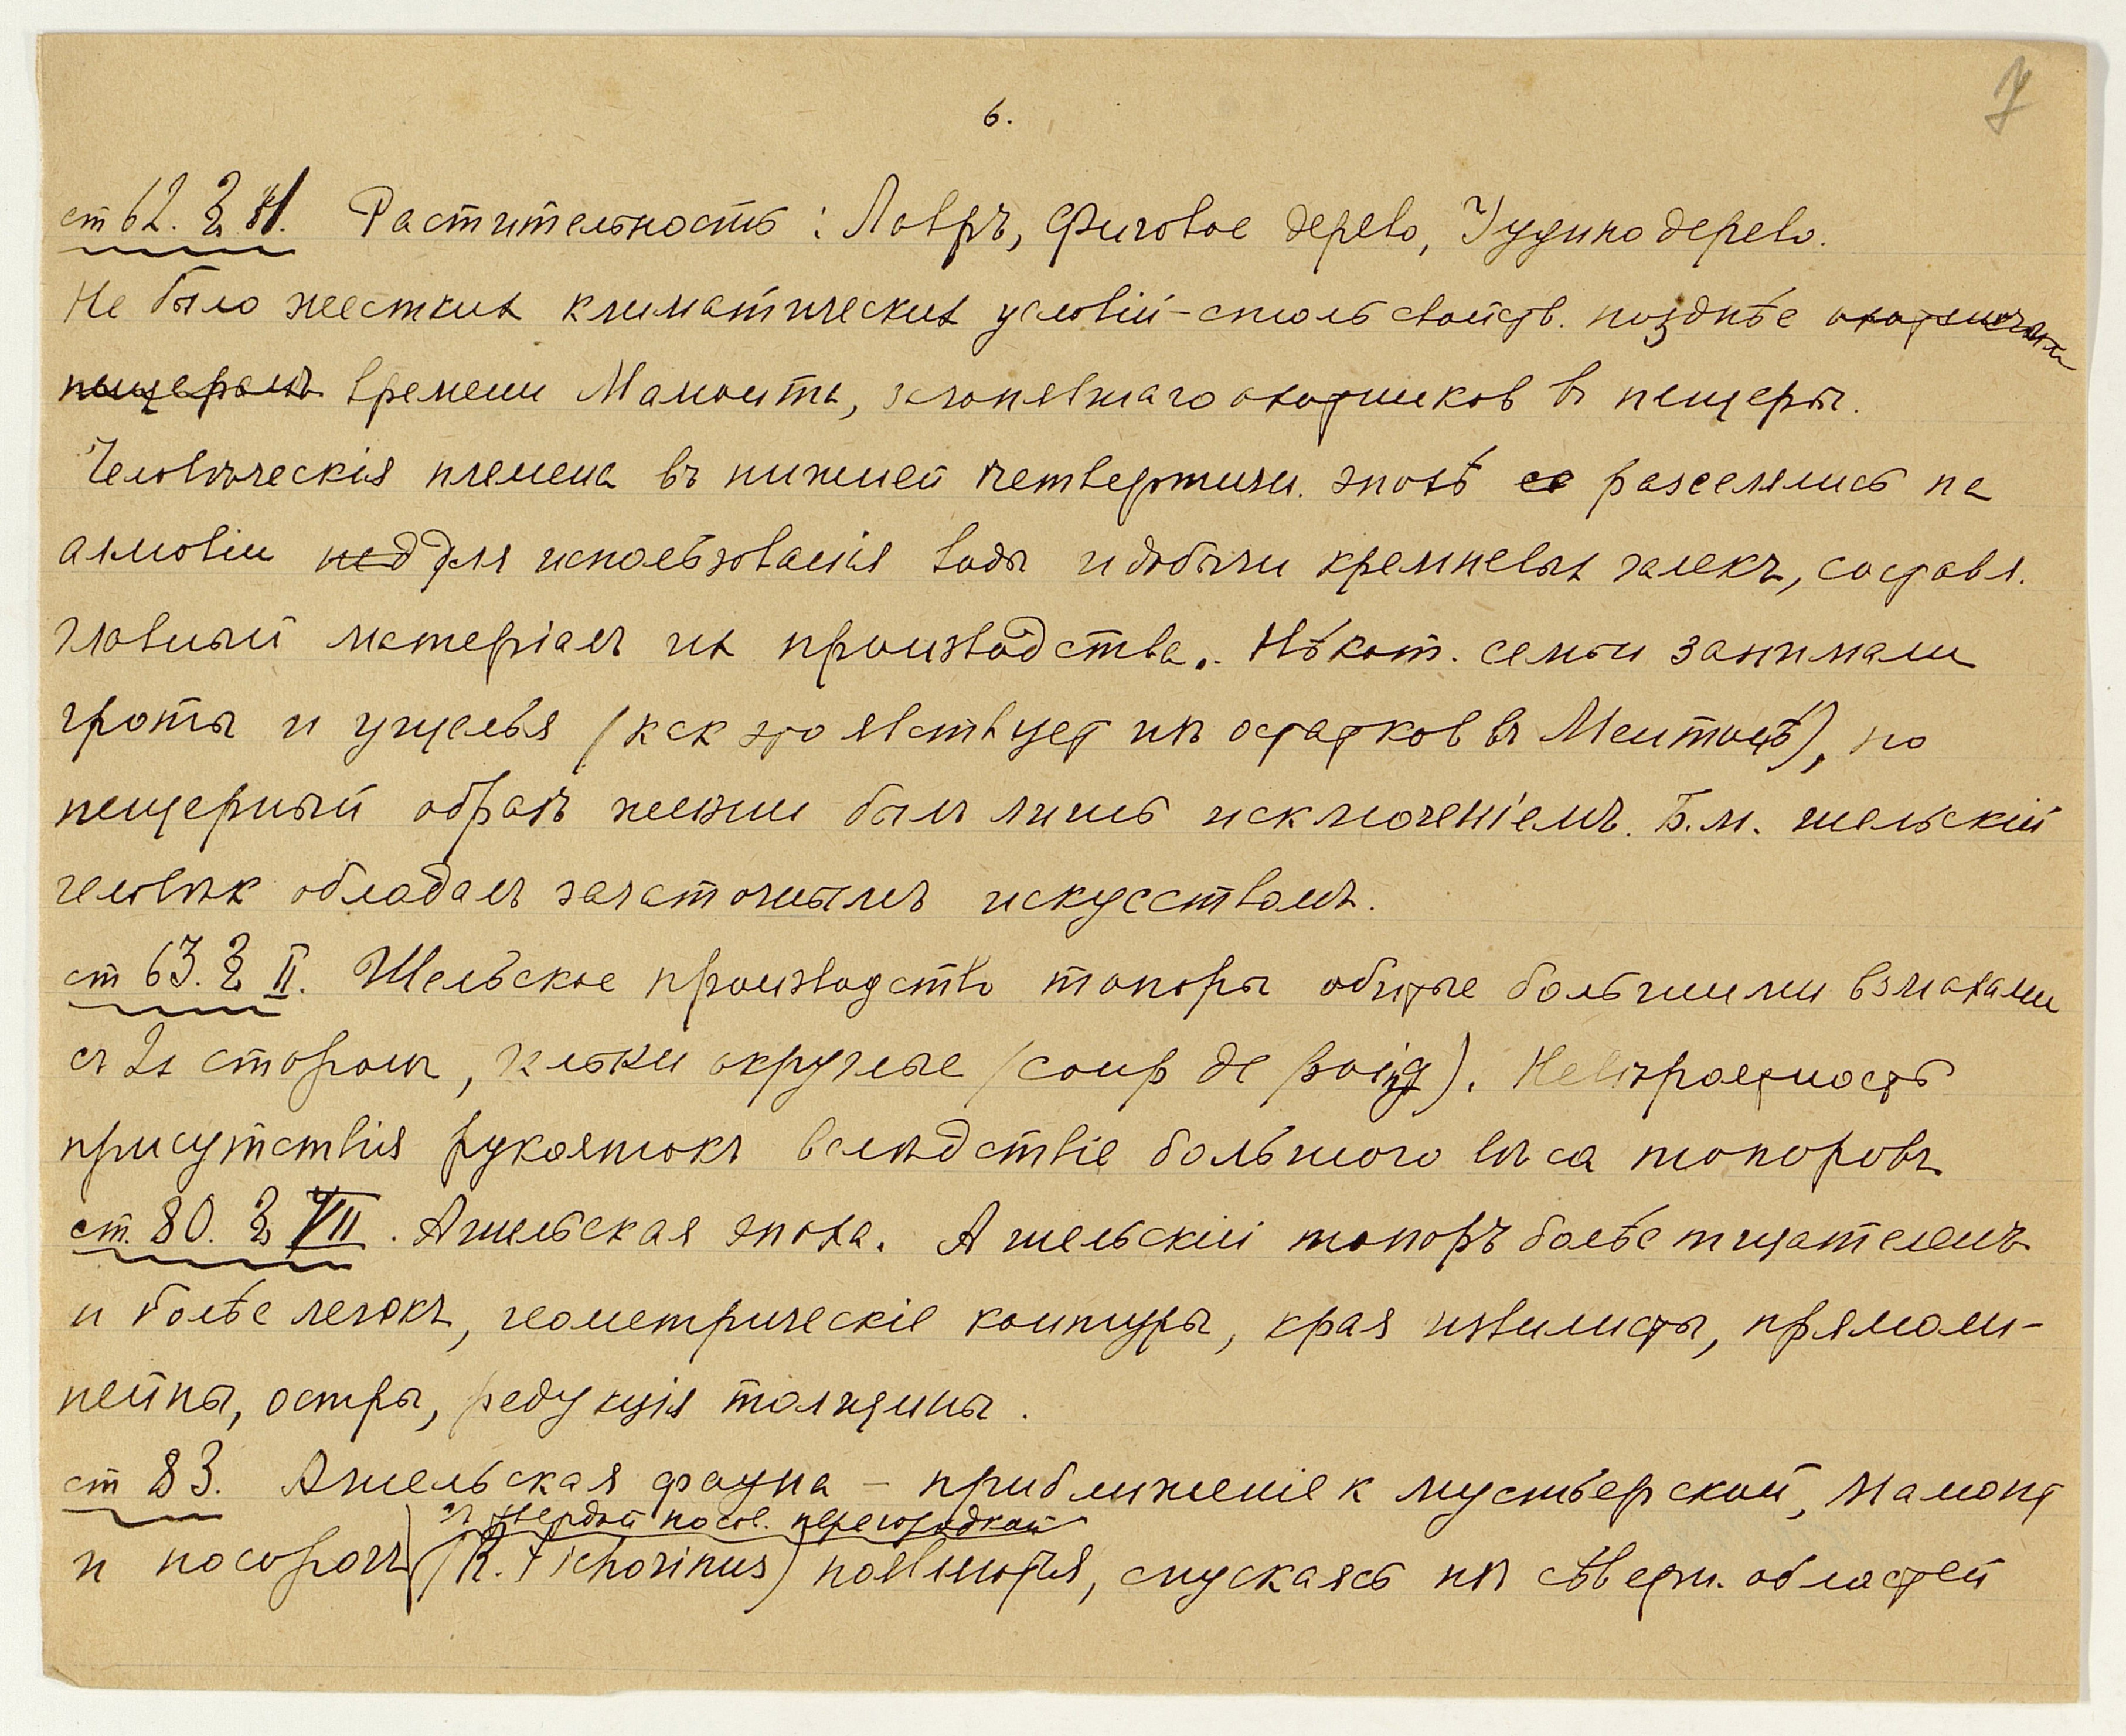 7
6.
ст 62. § VI. Растительность: Лавръ, Фиговое дерево, Iудино дерево.
Не было жесткихъ климатическихъ условiй - столь свойств. позднѣе охотничьим
пещерамъ времени Мамонта, загонявшаго охотников въ пещеры.
Человѣческiя племена въ нижней четвертичн. эпохѣ со разселялись на
аллювiи под для использованiя воды и добычи кремневых галекъ, составл.
главный матерiалъ их производства. Нѣкот. семьи занимали
гроты и ущелья (как это явствует из остатков въ Ментонѣ), но
пещерный образъ жизни былъ лишь исключенiемъ. Б.м. шельскiй
человѣк обладалъ зачаточнымъ искусствомъ.
ст 63. § II. Шельское производство топоры обитые большими взмахами
съ 2х сторонъ, клыки округлые (coup de poing). Невѣроятность
присутствiя рукоятокъ вслѣдствiе большого вѣса топоровъ
ст. 80. § VII. Ашельская эпоха. Ашельскiй топоръ болѣе тщателенъ
и болѣе легокъ, геометрическiе контуры, края извилисты, прямоли-
нейны, остры, редукцiя толщины.
ст 83. Ашельская фауна - приближенiе к мустьерской, Мамонт
съ твердой носов. перегородкой
и носорогъ (R. Tichorinus) появляются, спускаясь из сѣверн. областей